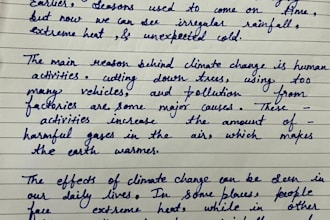 earlier, seasons used to come on time,
but now we can see irregular rainfall,
extreme heat, & unexpected cold.
The main reason behind climate change is human
activities. cutting down trees, using too
many vehicles, and pollution from
factories are some major causes. These -
activities increase the amount of -
harmful gases in the air, which makes
the earth warmer.
The effects of climate change can be seen in
our daily lives. In some places, people
face extreme heat, while in other